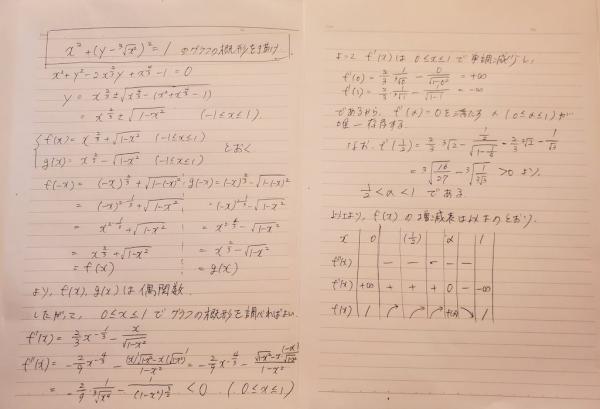 x² + (y - ³√x²)² = 1 のグラフの概形を描け.
x² + y² - 2x^{2/3}y + x^{4/3} - 1 = 0
y = x^{2/3} ± √(x^{4/3} - (x² + x^{4/3} - 1))
= x^{2/3} ± √(1-x²) (-1≤x≤1).
f(x) = x^{2/3} + √(1-x²) (-1≤x≤1)
g(x) = x^{2/3} - √(1-x²) (-1≤x≤1) とおく
f(-x) = (-x)^{2/3} + √(1-(-x)²) g(-x) = (-x)^{2/3} - √(1-(-x)²)
= (-x)^{2·1/3} + √(1-x²) = (-x)^{2·1/3} - √(1-x²)
= x^{2·1/3} + √(1-x²) = x^{2·1/3} - √(1-x²)
= x^{2/3} + √(1-x²) = x^{2/3} - √(1-x²)
= f(x) = g(x)
より, f(x), g(x) は偶関数.
したがって, 0≤x≤1 でグラフの概形を調べればよい.
f'(x) = 2/3 x^{-1/3} - x/√(1-x²)
f''(x) = -2/9 x^{-4/3} - ((x)'√(1-x²) - x(√(1-x²))')/(1-x²) = -2/9 x^{-4/3} - (√(1-x²) - x·(-x)/√(1-x²))/(1-x²)
= -2/9 · 1/³√x⁴ - 1/(1-x²)^{3/2} < 0 (0≤x≤1)
よって f'(x) は 0≤x≤1 で単調減少し,
f'(0) = 2/3 · 1/³√0 - 0/√(1-0²) = +∞
f'(1) = 2/3 · 1/³√1 - 1/√(1-1) = -∞
であるから, f'(α)=0 を満たす α (0≤α≤1) が
唯一存在する.
なお, f'(1/2) = 2/3 ³√2 - (1/2)/√(1-1/4) = 2/3 ³√2 - 1/√3
= ³√(16/27) - ³√(1/(3√3)) > 0 より,
1/2 < α < 1 である
以上より, f(x) の増減表は以下のとおり.
x 0 (1/2) α 1
f''(x) - - - - -
f'(x) +∞ + + + 0 - -∞
f(x) 1 ↗ ↗ ↘ 1